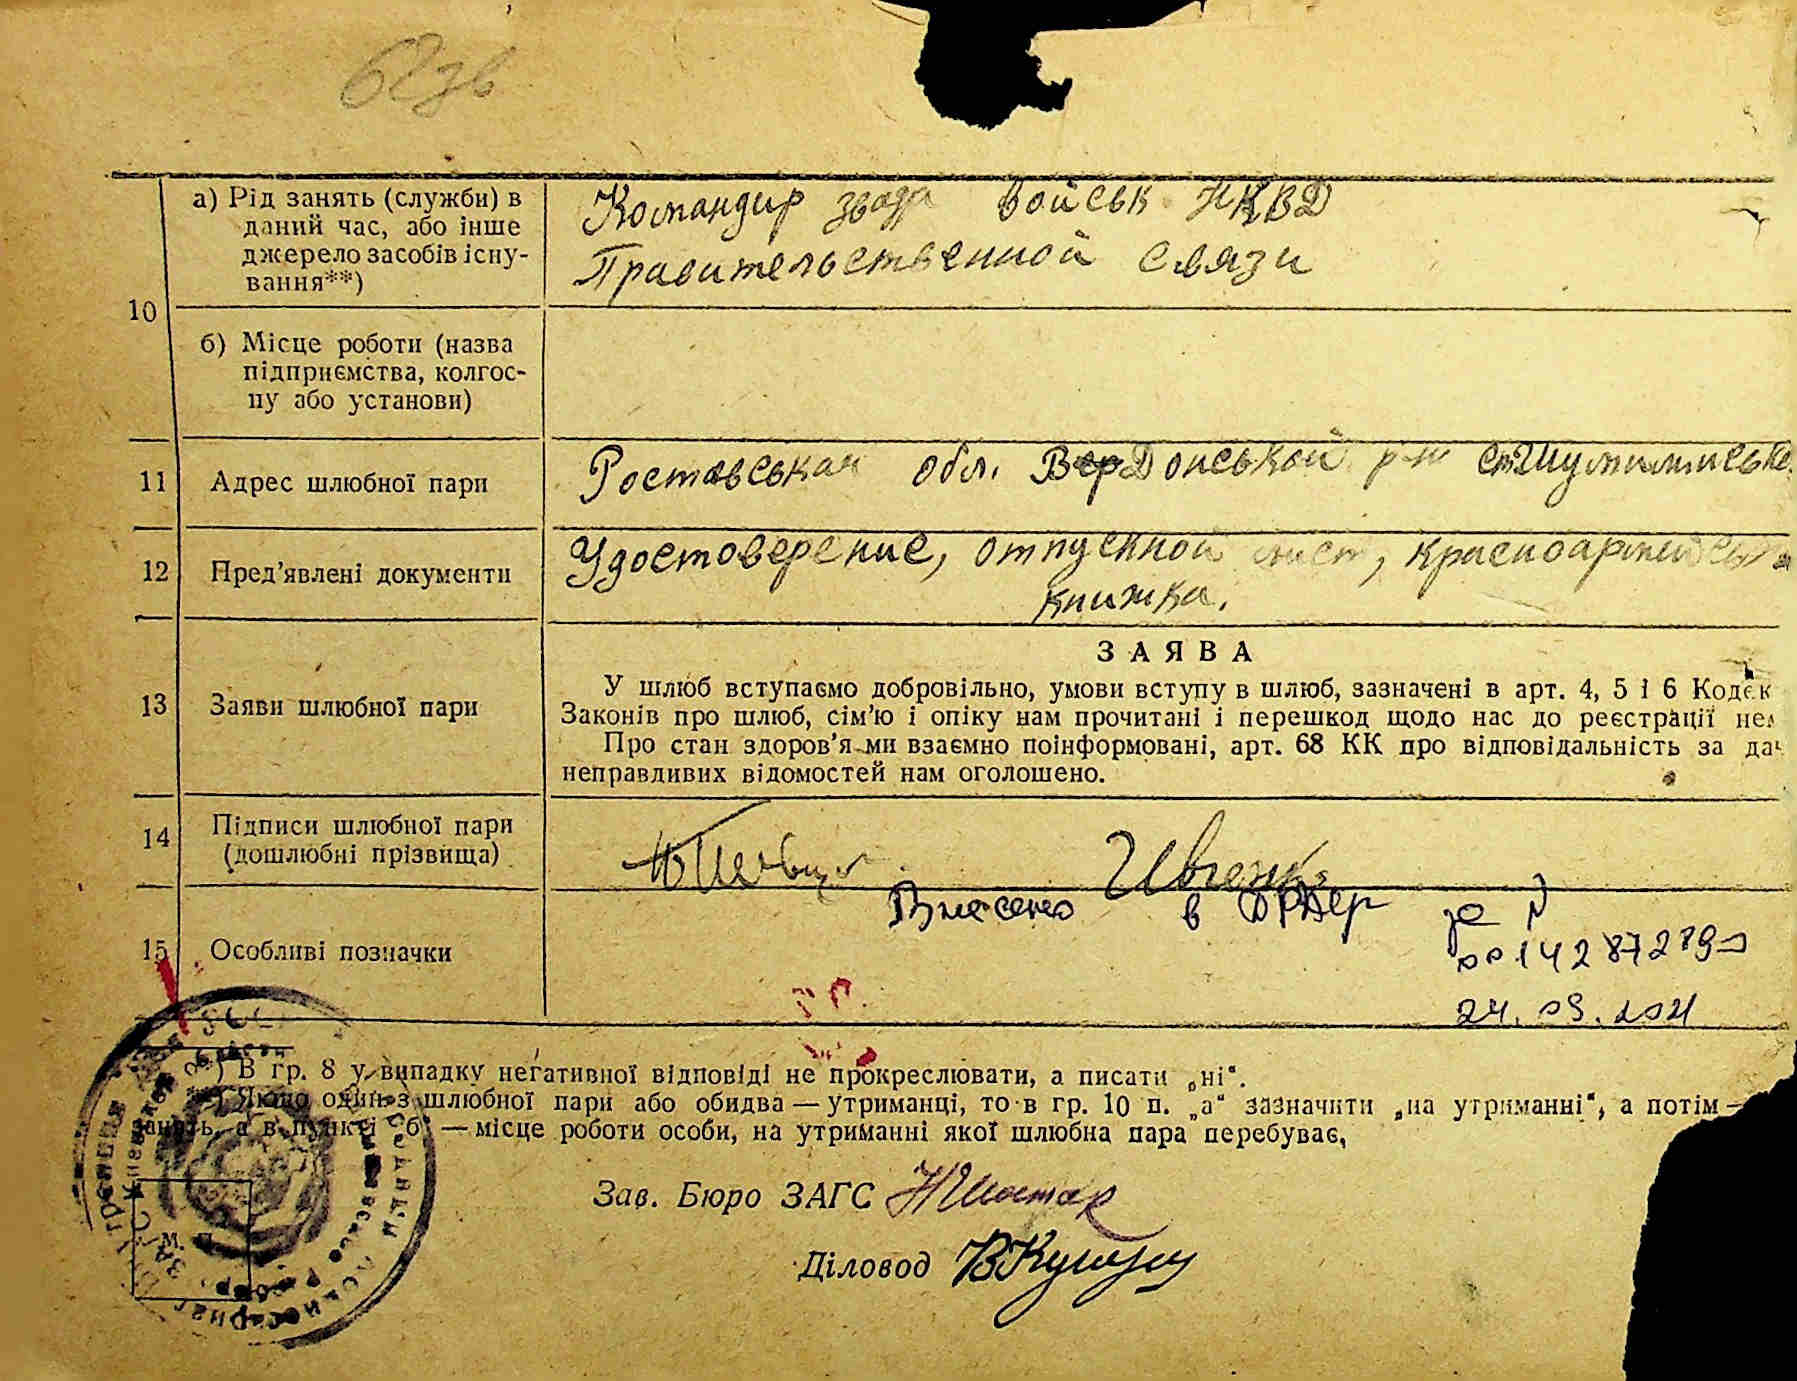 62 зв
а) Рід занять (служби) в
даний час, або інше
джерело засобів існу-
вання**)
Командир звода войськ НКВД
Правительственной связи
10
б) Місце роботи (назва
підприємства, колгос-
пу або установи)
11 Адрес шлюбної пари
Ростовськая обл. ВерДонськой р-н
12 Пред'явлені документи
Удостоверение, отпускной лист,
книжка.
13 Заяви шлюбної пари
ЗАЯВА
У шлюб вступаємо добровільно, умови вступу в шлюб, зазначені в арт. 4, 5 і 6 Кодек
Законів про шлюб, сім'ю і опіку нам прочитані і перешкод щодо нас до реєстрації не
Про стан здоров'я ми взаємно поінформовані, арт. 68 КК про відповідальність за да
неправдивих відомостей нам оголошено.
14 Підписи шлюбної пари
(дошлюбні прізвища)
Івченко
15 Особливі позначки
Внесено в ДРАЦС за №
00142872790
24.09.2021
*) В гр. 8 у випадку негативної відповіді не прокреслювати, а писати „ні“.
**) Якщо один з шлюбної пари або обидва — утриманці, то в гр. 10 п. „а“ зазначити „на утриманні“, а потім —
занять, а в пункті „б“ — місце роботи особи, на утриманні якої шлюбна пара перебуває,
Зав. Бюро ЗАГС
Діловод
М. П.